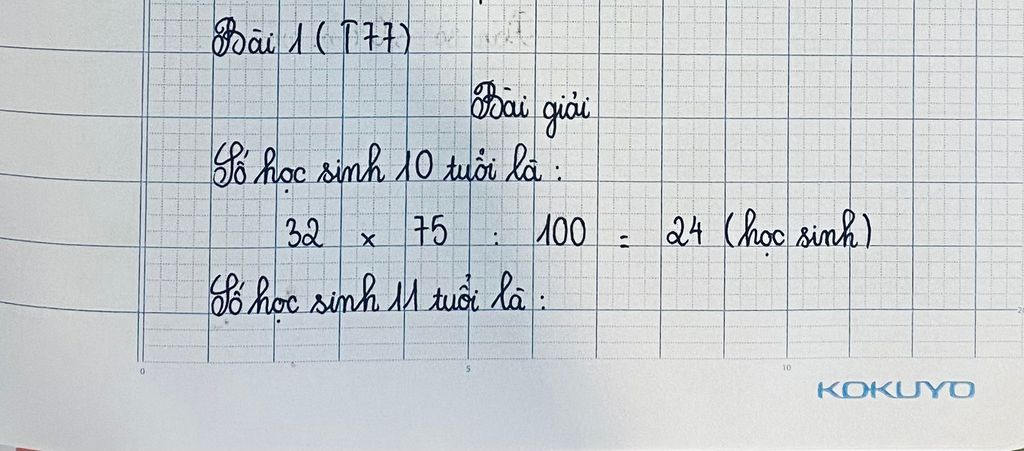 Bài 1 (T77)
Bài giải
Số học sinh 10 tuổi là :
32 x 75 : 100 = 24 (học sinh)
Số học sinh 11 tuổi là :
0 5 10
KOKUYO